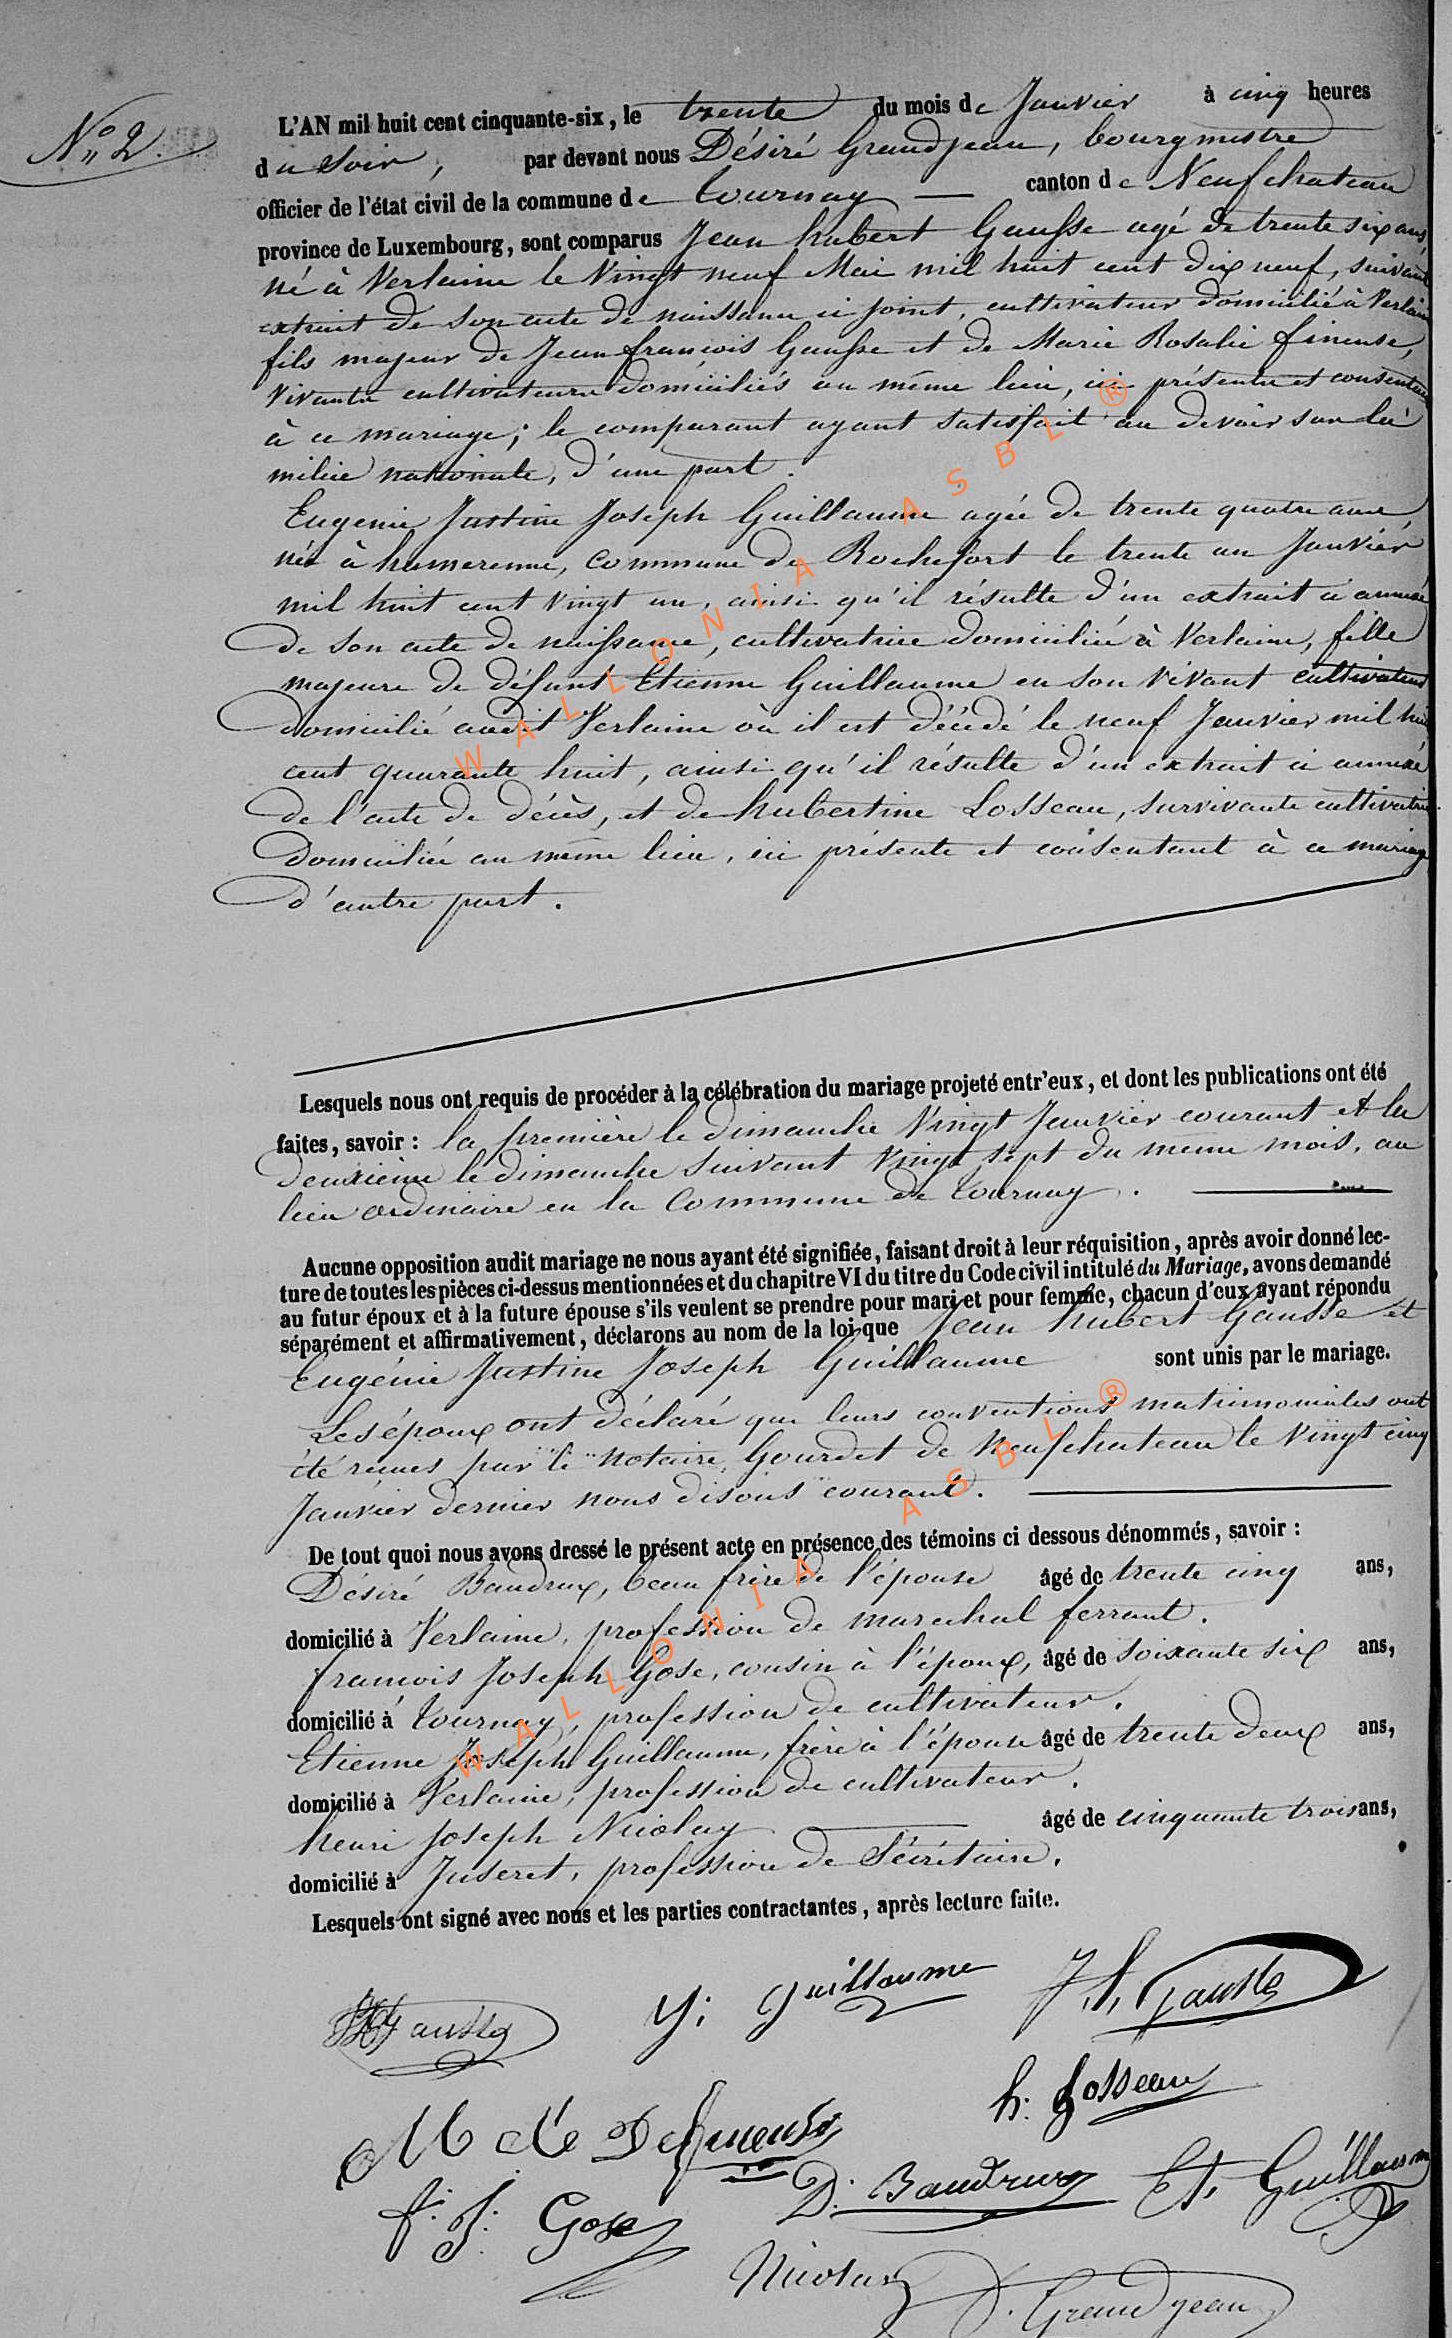 N° 2.
L'AN mil huit cent cinquante-six, le trente du mois de Janvier à cinq heures
du soir, par devant nous Désiré Grandjean, bourgmestre
officier de l'état civil de la commune de Tournay — canton de Neufchateau
province de Luxembourg, sont comparus Jean hubert Gausse agé de trente six ans,
né à Verlaine le Vingt neuf Mai mil huit cent dix neuf, suivant
extrait de son acte de naissance ci joint, cultivateur domicilié à Verlaine
fils majeur de Jean françois Gausse et de Marie Rosalie fineuse,
vivants cultivateurs domiciliés au même lieu, ici présents et consentants
à ce mariage; le comparant ayant satisfait au devoir sur la
milice nationale, d'une part.
Eugenie Justine Joseph Guillaume agée de trente quatre ans,
née à hamerenne, commune de Rochefort le trente un Janvier
mil huit cent vingt un, ainsi qu'il résulte d'un extrait ci annexé
de son acte de naissance, cultivatrice domiciliée à Verlaine, fille
majeure de défunt Etienne Guillaume en son vivant cultivateur
domicilié audit Verlaine où il est décédé le neuf Janvier mil huit
cent quarante huit, ainsi qu'il résulte d'un extrait ci annexé
de l'acte de décès, et de hubertine Losseau, survivante cultivatrice
domiciliée au même lieu, ici présente et consentant à ce mariage
d'autre part.
Lesquels nous ont requis de procéder à la célébration du mariage projeté entr'eux, et dont les publications ont été
faites, savoir : la première le dimanche Vingt Janvier courant et la
deuxième le dimanche suivant vingt sept du meme mois, au
lieu ordinaire en la Commune de Tournay.
Aucune opposition audit mariage ne nous ayant été signifiée, faisant droit à leur réquisition, après avoir donné lec-
ture de toutes les pièces ci-dessus mentionnées et du chapitre VI du titre du Code civil intitulé du Mariage, avons demandé
au futur époux et à la future épouse s'ils veulent se prendre pour mari et pour femme, chacun d'eux ayant répondu
séparément et affirmativement, déclarons au nom de la loi que Jean hubert Gausse et
Eugénie Justine Joseph Guillaume sont unis par le mariage.
Les époux ont déclaré que leurs conventions matrimoniales ont
été reçues par le notaire Gourdet de Neufchateau le Vingt cinq
Janvier dernier nous disons courant.
De tout quoi nous avons dressé le présent acte en présence des témoins ci dessous dénommés, savoir :
Désiré Baudrux, beau frère de l'épouse âgé de trente cinq ans,
domicilié à Verlaine, profession de marechal ferrant.
francois Joseph Gose, cousin à l'époux, âgé de soixante six ans,
domicilié à Tournay, profession de cultivateur.
Etienne Joseph Guillaume, frère à l'épouse âgé de trente deux ans,
domicilié à Verlaine, profession de cultivateur.
henri Joseph Nicolay âgé de cinquante trois ans,
domicilié à Juseret, profession de Sécrétaire.
Lesquels ont signé avec nous et les parties contractantes, après lecture faite.
Gausse J: Guillaume J. f. Gausse
h: Losseau
D: Baudrux Et. Guillaume
f: J: Gose
Nicolay D. Grandjean
WALLONIA ASBL ®
WALLONIA ASBL ®